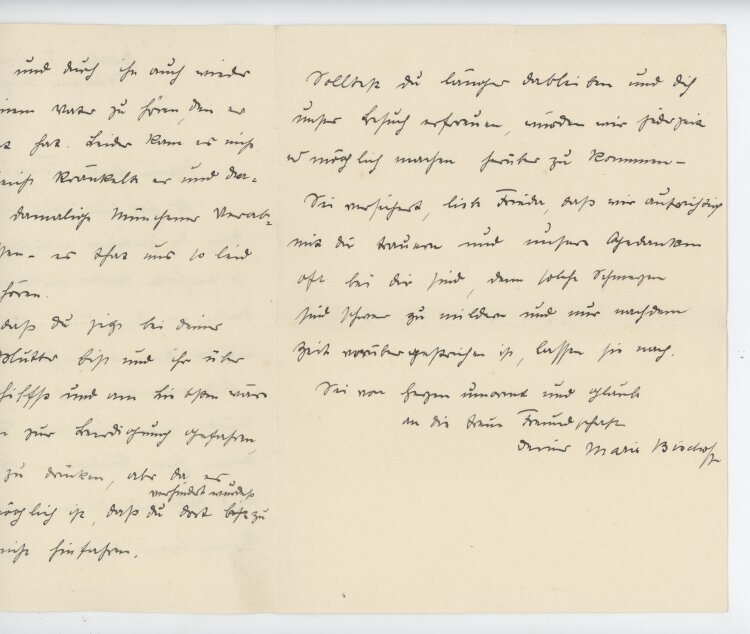 und durch ihn auch wieder
einem Vater zu hören, den er
hat. Leider kam es nicht
kränkelte er und
damalige Münchener Verab-
es that uns so leid
hören.
daß du jetzt bei deiner
Mutter bist und ihr über
hilfst und am liebsten wäre
zur Beerdigung gefahren,
zu drücken, aber da es
verhindert wurdest
möglich ist, daß du dort bist zu
nicht hinfahren.
Solltest du länger dableiben und dich
unser Besuch erfreuen, würden wir jederzeit
es möglich machen herüber zu kommen –
Sei versichert, liebe Frieda, daß wir aufrichtig
mit dir trauern und unsere Gedanken
oft bei dir sind, denn solche Schmerzen
sind schwer zu mildern und nur nachdem
Zeit vorüber gestrichen ist, lassen sie nach.
Sei von Herzen umarmt und glaube
an die treue Freundschaft
deiner Marie Bischoff